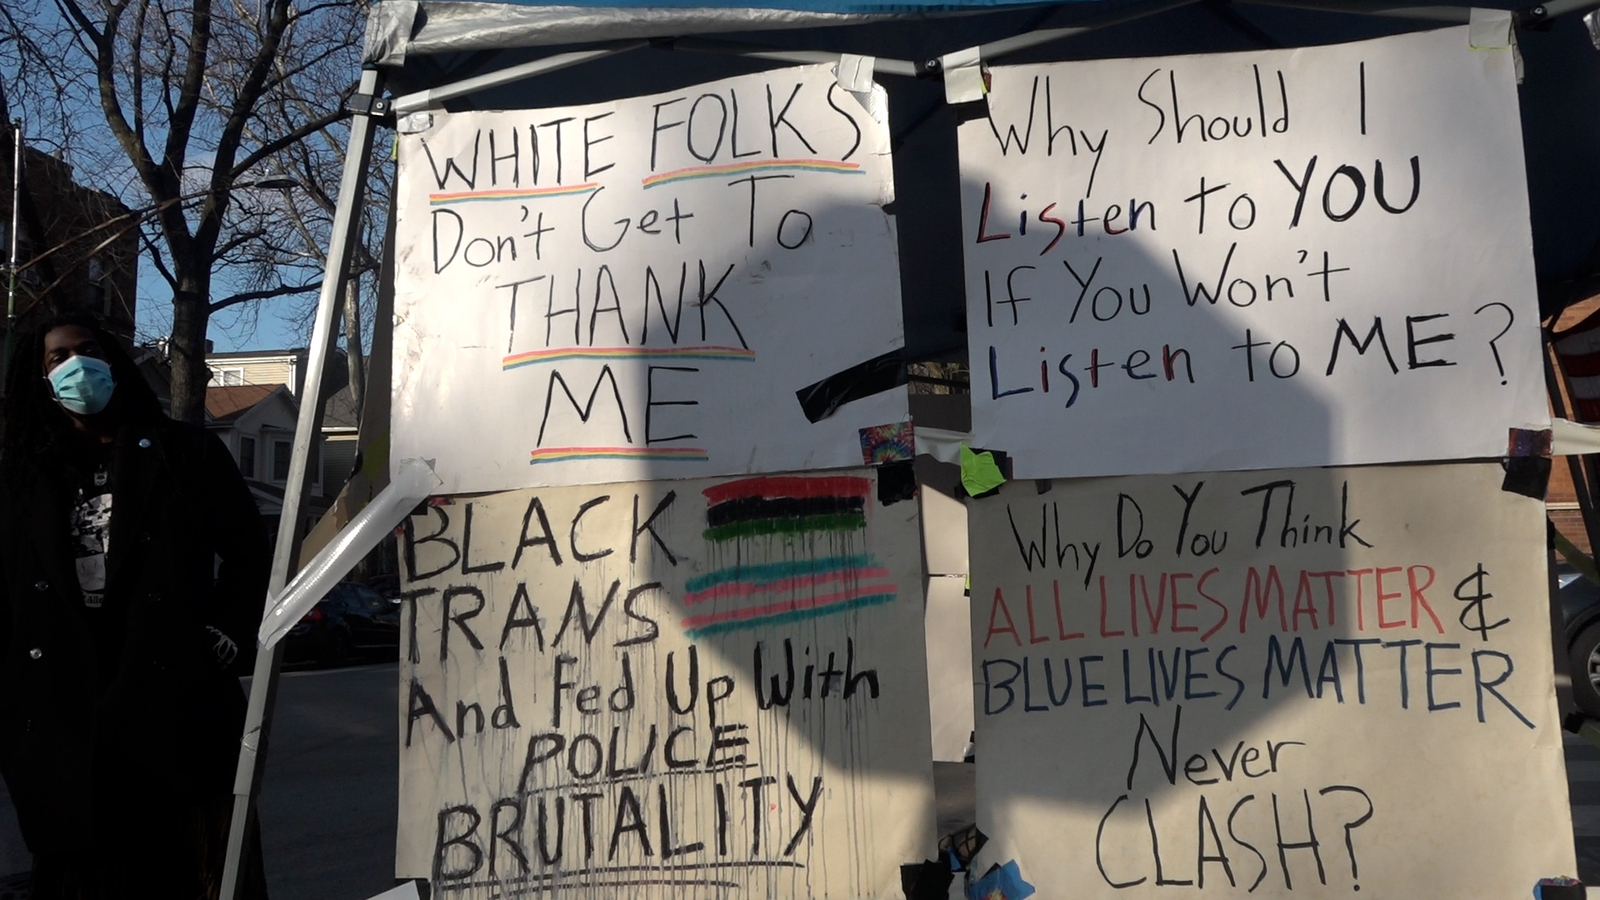 WHITE FOLKS
Don't Get To
THANK
ME
Why Should I
Listen to YOU
If You Won't
Listen to ME?
BLACK
TRANS
And Fed Up With
POLICE
BRUTALITY
Why Do You Think
ALL LIVES MATTER &
BLUE LIVES MATTER
Never
CLASH?